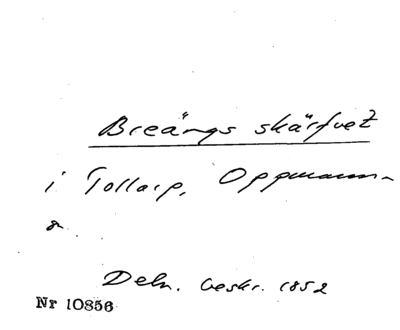 Breängs skärfvet
i Tollarp, Oppmanna-
Deln. beskr. 1852
Nr 10856